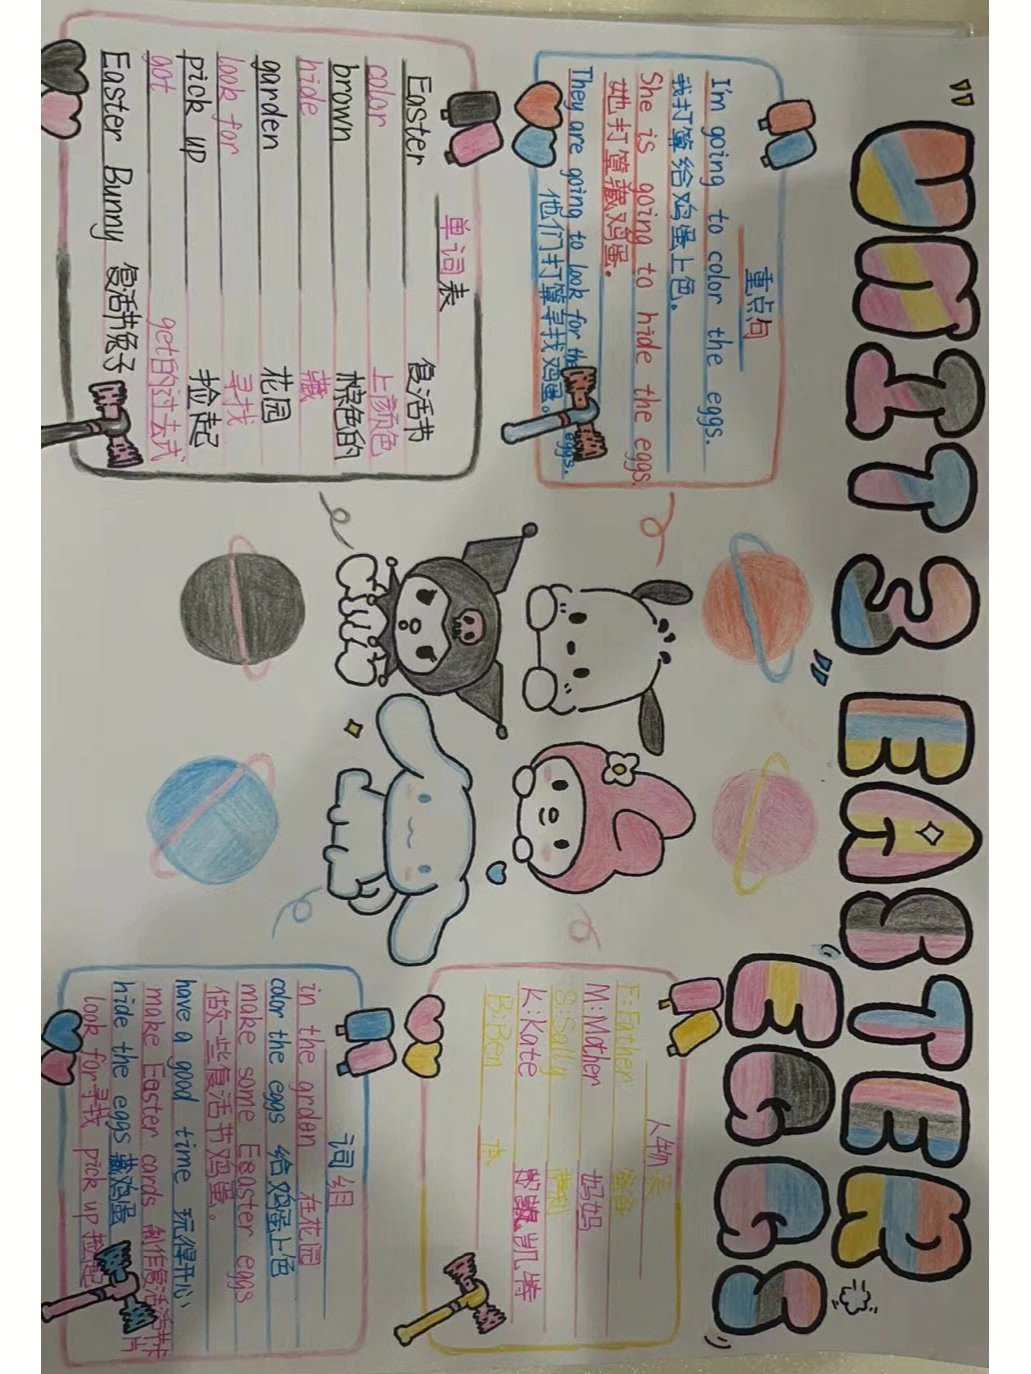 UNIT 3 EASTER
EGGS
重点句
I'm going to color the eggs.
我打算给鸡蛋上色。
She is going to hide the eggs.
她打算藏鸡蛋。
They are going to look for the eggs.
他们打算寻找鸡蛋。
人物表
F:Father 爸爸
M:Mother 妈妈
S:Sally
K:Kate 凯特
B:Ben 本
单词表
Easter 复活节
color 上颜色
brown 棕色的
hide 藏
garden 花园
look for 寻找
pick up 捡起
got get的过去式
Easter Bunny 复活节兔子
词组
in the grden 在花园
color the eggs 给鸡蛋上色
make some Egaster eggs
做一些复活节鸡蛋。
have a good time 玩得开心
make Easter cards 制作复活节卡片
hide the eggs 藏鸡蛋
look for寻找 pick up 捡起